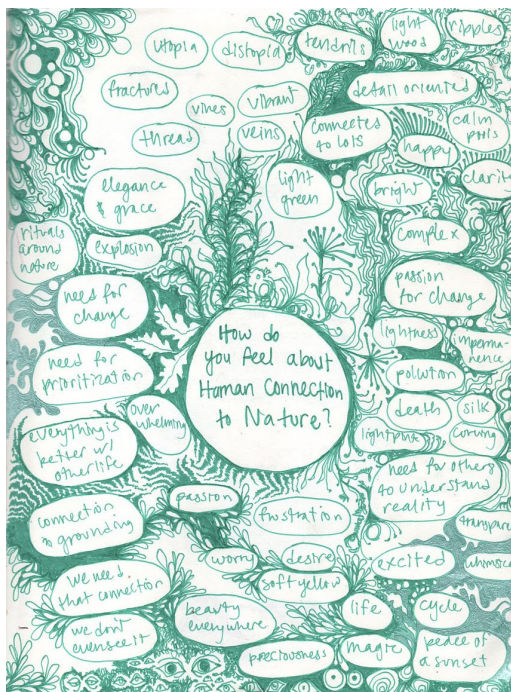 utopia
distopia
tendrils
light
wood
ripples
fractured
vines
vibrant
detail oriented
thread
veins
connected
to lots
happy
calm
clarity
elegance
& grace
light
green
bright
rituals
around
nature
explosion
complex
need for
change
passion
for change
How do
you feel about
Human Connection
to Nature?
lightness
imperma-
nence
need for
prioritization
polution
over
whelming
death
silk
everything is
better w/
other life
light pink
curving
need for others
to understand
reality
passion
frustration
connection
to grounding
transpare
worry
desire
excited
whimsica
soft yellow
we need
that connection
beauty
everywhere
life
cycle
we don't
even see it
preciousness
magic
peace of
a sunset